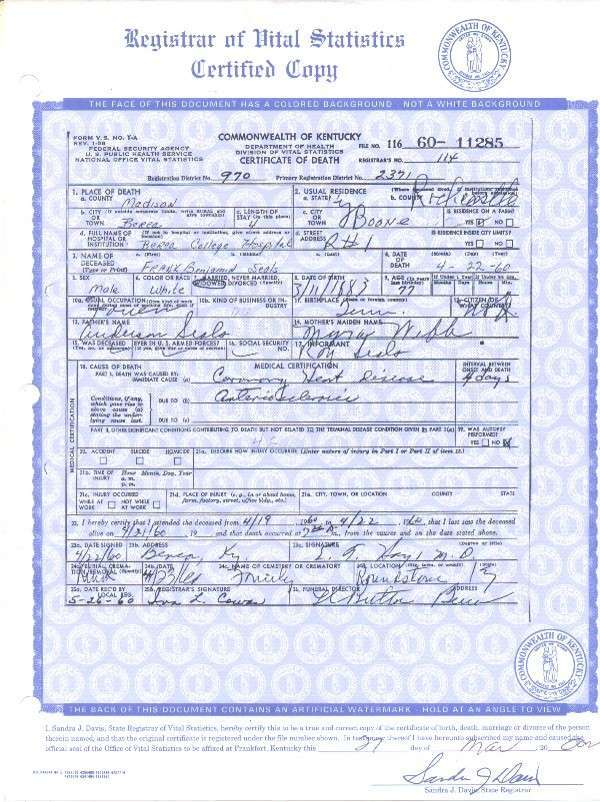 Registrar of Vital Statistics
Certified Copy
COMMONWEALTH OF KENTUCKY
THE FACE OF THIS DOCUMENT HAS A COLORED BACKGROUND NOT A WHITE BACKGROUND
FORM V. S. NO. 1-A
FEDERAL SECURITY AGENCY
U. S. PUBLIC HEALTH SERVICE
NATIONAL OFFICE VITAL STATISTICS
COMMONWEALTH OF KENTUCKY
DEPARTMENT OF HEALTH
DIVISION OF VITAL STATISTICS
CERTIFICATE OF DEATH
FILE NO. 116 60- 11285
REGISTRAR'S NO. 114
Registration District No. 970 Primary Registration District No. 2371
1. PLACE OF DEATH
a. COUNTY Madison
2. USUAL RESIDENCE
a. STATE Ky b. COUNTY Rockcastle
b. CITY OR TOWN Berea
c. LENGTH OF STAY (in this place) 4
c. CITY OR TOWN Boone
IS RESIDENCE ON A FARM?
YES NO
d. FULL NAME OF HOSPITAL OR INSTITUTION Berea College Hospital
d. STREET ADDRESS R#1
IS RESIDENCE INSIDE CITY LIMITS?
YES NO
3. NAME OF DECEASED (Type or Print) Frank Benjamin Seals
4. DATE OF DEATH 4 22-60
5. SEX Male
6. COLOR OR RACE White
7. MARRIED, NEVER MARRIED, WIDOWED, DIVORCED (Specify)
8. DATE OF BIRTH 3/11/1883
9. AGE 77
10a. USUAL OCCUPATION
10b. KIND OF BUSINESS OR INDUSTRY
11. BIRTHPLACE Tenn.
12. CITIZEN OF WHAT COUNTRY?
13. FATHER'S NAME Anderson Seals
14. MOTHER'S MAIDEN NAME Webb
15. WAS DECEASED EVER IN U. S. ARMED FORCES?
16. SOCIAL SECURITY NO.
17. INFORMANT Roy Seals
18. CAUSE OF DEATH MEDICAL CERTIFICATION
INTERVAL BETWEEN ONSET AND DEATH
PART I. DEATH WAS CAUSED BY:
IMMEDIATE CAUSE (a) Coronary Heart Disease 4 days
Conditions, if any, which gave rise to above cause (a) stating the underlying cause last.
DUE TO (b) Arteriosclerosis
DUE TO (c)
PART II. OTHER SIGNIFICANT CONDITIONS CONTRIBUTING TO DEATH BUT NOT RELATED TO THE TERMINAL DISEASE CONDITION GIVEN IN PART I(a)
19. WAS AUTOPSY PERFORMED?
YES NO
MEDICAL CERTIFICATION
ACCIDENT SUICIDE HOMICIDE
21a. DESCRIBE HOW INJURY OCCURRED (Enter nature of injury in Part I or Part II of item 18.)
21b. TIME OF INJURY Hour Month, Day, Year
a. m.
p. m.
21c. INJURY OCCURRED
WHILE AT WORK NOT WHILE AT WORK
21d. PLACE OF INJURY (e.g., in or about home, farm, factory, street, office bldg., etc.)
21e. CITY, TOWN, OR LOCATION COUNTY STATE
22. I hereby certify that I attended the deceased from 4/19 1960 to 4/22, 1960, that I last saw the deceased
alive on 4/21/60, 19 and that death occurred at m., from the causes and on the date stated above.
23a. DATE SIGNED 4/22/60
23b. ADDRESS Berea, Ky
23c. SIGNATURE M.D.
24a. BURIAL, CREMATION, REMOVAL (Specify)
24b. DATE
24c. NAME OF CEMETERY OR CREMATORY
24d. LOCATION Roundstone Ky
25a. DATE REC'D BY LOCAL REG. 5-26-60
25b. REGISTRAR'S SIGNATURE Iva L. Cowan
26. FUNERAL DIRECTOR ADDRESS
COMMONWEALTH OF KENTUCKY
THE BACK OF THIS DOCUMENT CONTAINS AN ARTIFICIAL WATERMARK - HOLD AT AN ANGLE TO VIEW
I, Sandra J. Davis, State Registrar of Vital Statistics, hereby certify this to be a true and correct copy of the certificate of birth, death, marriage or divorce of the person
therein named, and that the original certificate is registered under the file number shown. In testimony thereof I have hereunto subscribed my name and caused the
official seal of the Office of Vital Statistics to be affixed at Frankfort, Kentucky this 21 day of Mar 20
Sandra J. Davis
Sandra J. Davis, State Registrar